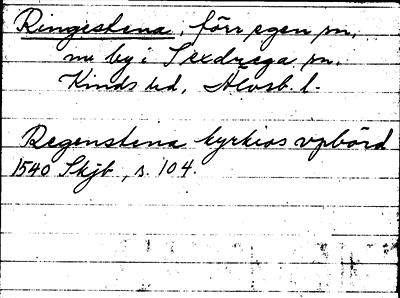 Ringestena, förr egen sn,
nu by i Sexdrega sn.
Kinds hd, Älvsb. l.
Regenstena kyrkios vpbörd
1540 Skjb, s. 104.